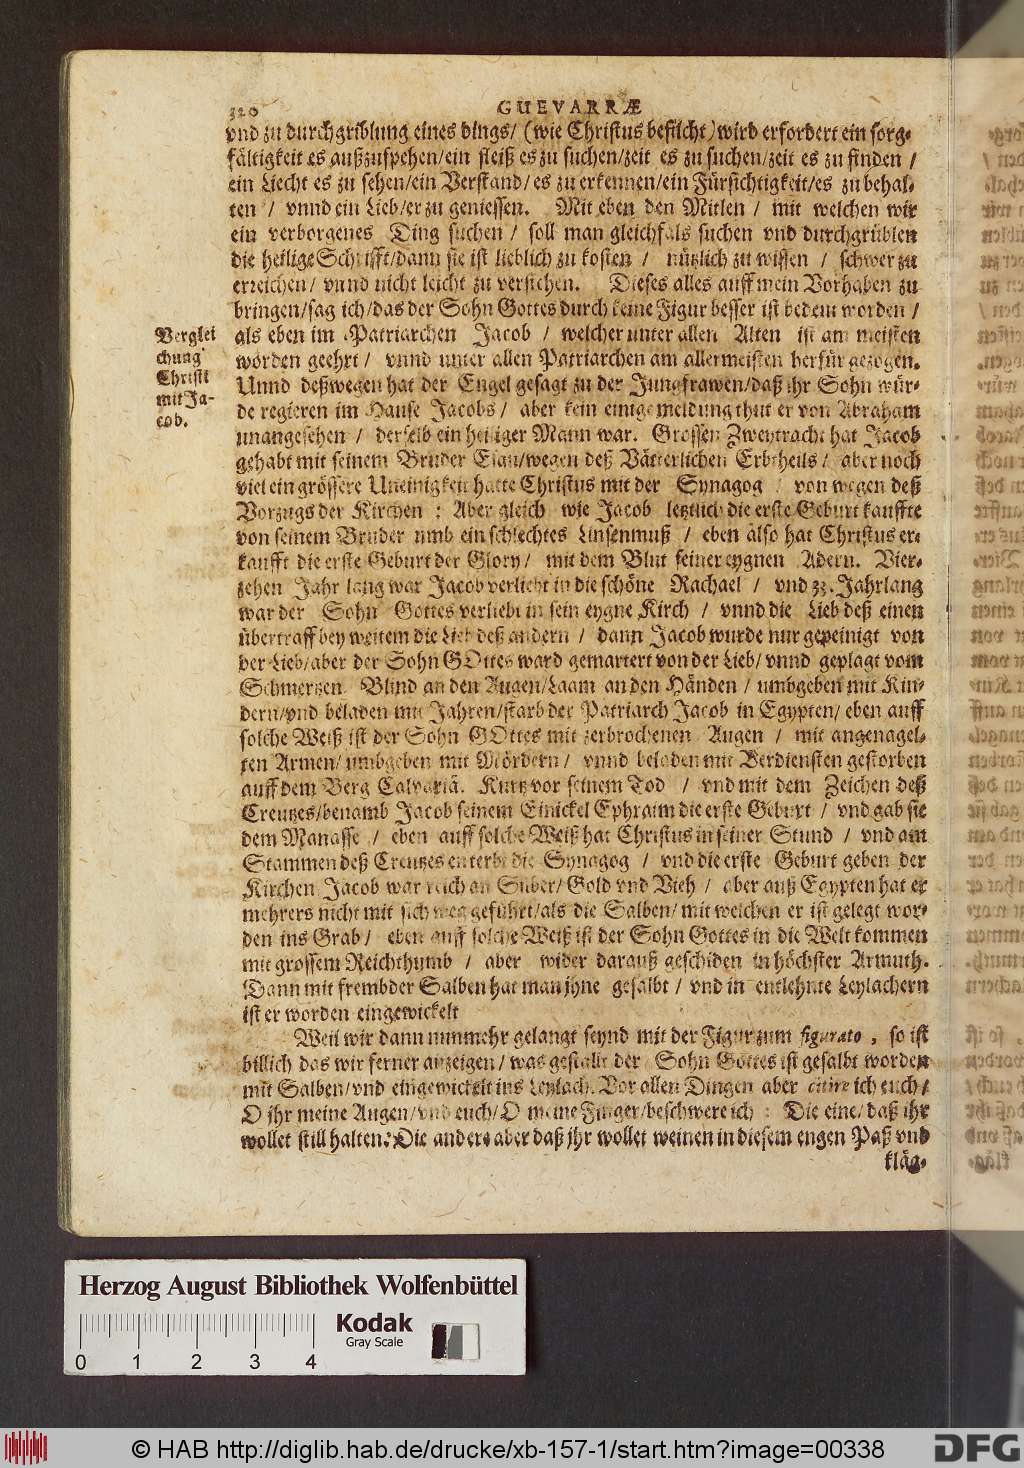 320
GUEVARRÆ
vnd zu durchgriblung eines dings/ (wie Christus besticht) wird erfordert ein sorg-
fältigkeit es außzuspehen/ein fleiß es zu suchen/zeit es zu suchen/zeit es zu finden /
ein Liecht es zu sehen/ein Verstand/es zu erkennen/ein Fürsichtigkeit/es zu behal-
ten / vnnd ein Lieb/er zu geniessen. Mit eben den Mitlen / mit welchen wir
ein verborgenes Ding suchen / soll man gleichfals suchen vnd durchgrüblen
die heilige Schrifft/dann sie ist lieblich zu kosten / nützlich zu wissen / schwer zu
erreichen/ vnnd nicht leicht zu verstehen. Dieses alles auff mein Vorhaben zu
bringen/sag ich/das der Sohn Gottes durch keine Figur besser ist bedeut worden /
als eben im Patriarchen Jacob / welcher unter allen Alten ist am meisten
worden geehrt / vnnd unter allen Patriarchen am allermeisten herfür gezogen.
Vnnd deßwegen hat der Engel gesagt zu der Jungfrawen/daß ihr Sohn wür-
de regieren im Hause Jacobs / aber kein einige meldung thut er von Abraham
unangesehen / derselb ein heiliger Mann war. Grossen Zweytracht hat Jacob
gehabt mit seinem Bruder Esau/wegen deß Vätterlichen Erbtheils / aber noch
viel ein grössere Uneinigkeit hatte Christus mit der Synagog / von wegen deß
Vorzugs der Kirchen : Aber gleich wie Jacob letztlich die erste Geburt kauffte
von seinem Bruder umb ein schlechtes Linsenmuß / eben also hat Christus er-
kaufft die erste Geburt der Glory / mit dem Blut seiner eygnen Adern. Vier-
zehen Jahr lang war Jacob verliebt in die schöne Rachael / vnd 33. Jahr lang
war der Sohn Gottes verliebt in sein eygne Kirch / vnnd die Lieb deß einen
übertraff bey weitem die Lieb deß andern / dann Jacob wurde nur gepeinigt von
der Lieb/aber der Sohn GOttes ward gemartert von der Lieb/ vnnd geplagt vom
Schmertzen. Blind an den Augen/Laam an den Händen / umbgeben mit Kin-
dern/vnd beladen mit Jahren/starb der Patriarch Jacob in Egypten/ eben auff
solche Weiß ist der Sohn GOttes mit zerbrochenen Augen / mit angenagel-
ten Armen/ umbgeben mit Mördern / vnnd beladen mit Verdiensten gestorben
auff dem Berg Calvariä. Kurtz vor seinem Tod / vnd mit dem Zeichen deß
Creutzes/benamb Jacob seinem Einickel Ephraim die erste Geburt / vnd gab sie
dem Manasse / eben auff solche Weiß hat Christus in seiner Stund / vnd am
Stammen deß Creutzes enterbt die Synagog / vnd die erste Geburt geben der
Kirchen. Jacob war reich an Silber/ Gold vnd Vieh / aber auß Egypten hat er
mehrers nicht mit sich weg geführt/als die Salben/mit welchen er ist gelegt wor-
den ins Grab / eben auff solche Weiß ist der Sohn Gottes in die Welt kommen
mit grossem Reichthumb / aber wider darauß geschiden in höchster Armuth.
Dann mit frembder Salben hat man jhne gesalbt / vnd in entlehnte Leylachern
ist er worden eingewickelt
Weil wir dann nunmehr gelangt seynd mit der Figur zum figurato, so ist
billich das wir ferner anzeigen / was gestalt der Sohn Gottes ist gesalbt worden
mit Salben/vnd eingewickelt ins Leylach. Vor allen Dingen aber citire ich euch /
O ihr meine Augen/vnd euch/O meine Finger/beschwere ich : Die eine/ daß ihr
wollet still halten: Die andere aber daß jhr wollet weinen in diesem engen Paß vnd
kläg-
Verglei
chung
Christi
mit Ja-
cob.
Herzog August Bibliothek Wolfenbüttel
Kodak
Gray Scale
0 1 2 3 4
© HAB http://diglib.hab.de/drucke/xb-157-1/start.htm?image=00338
DFG